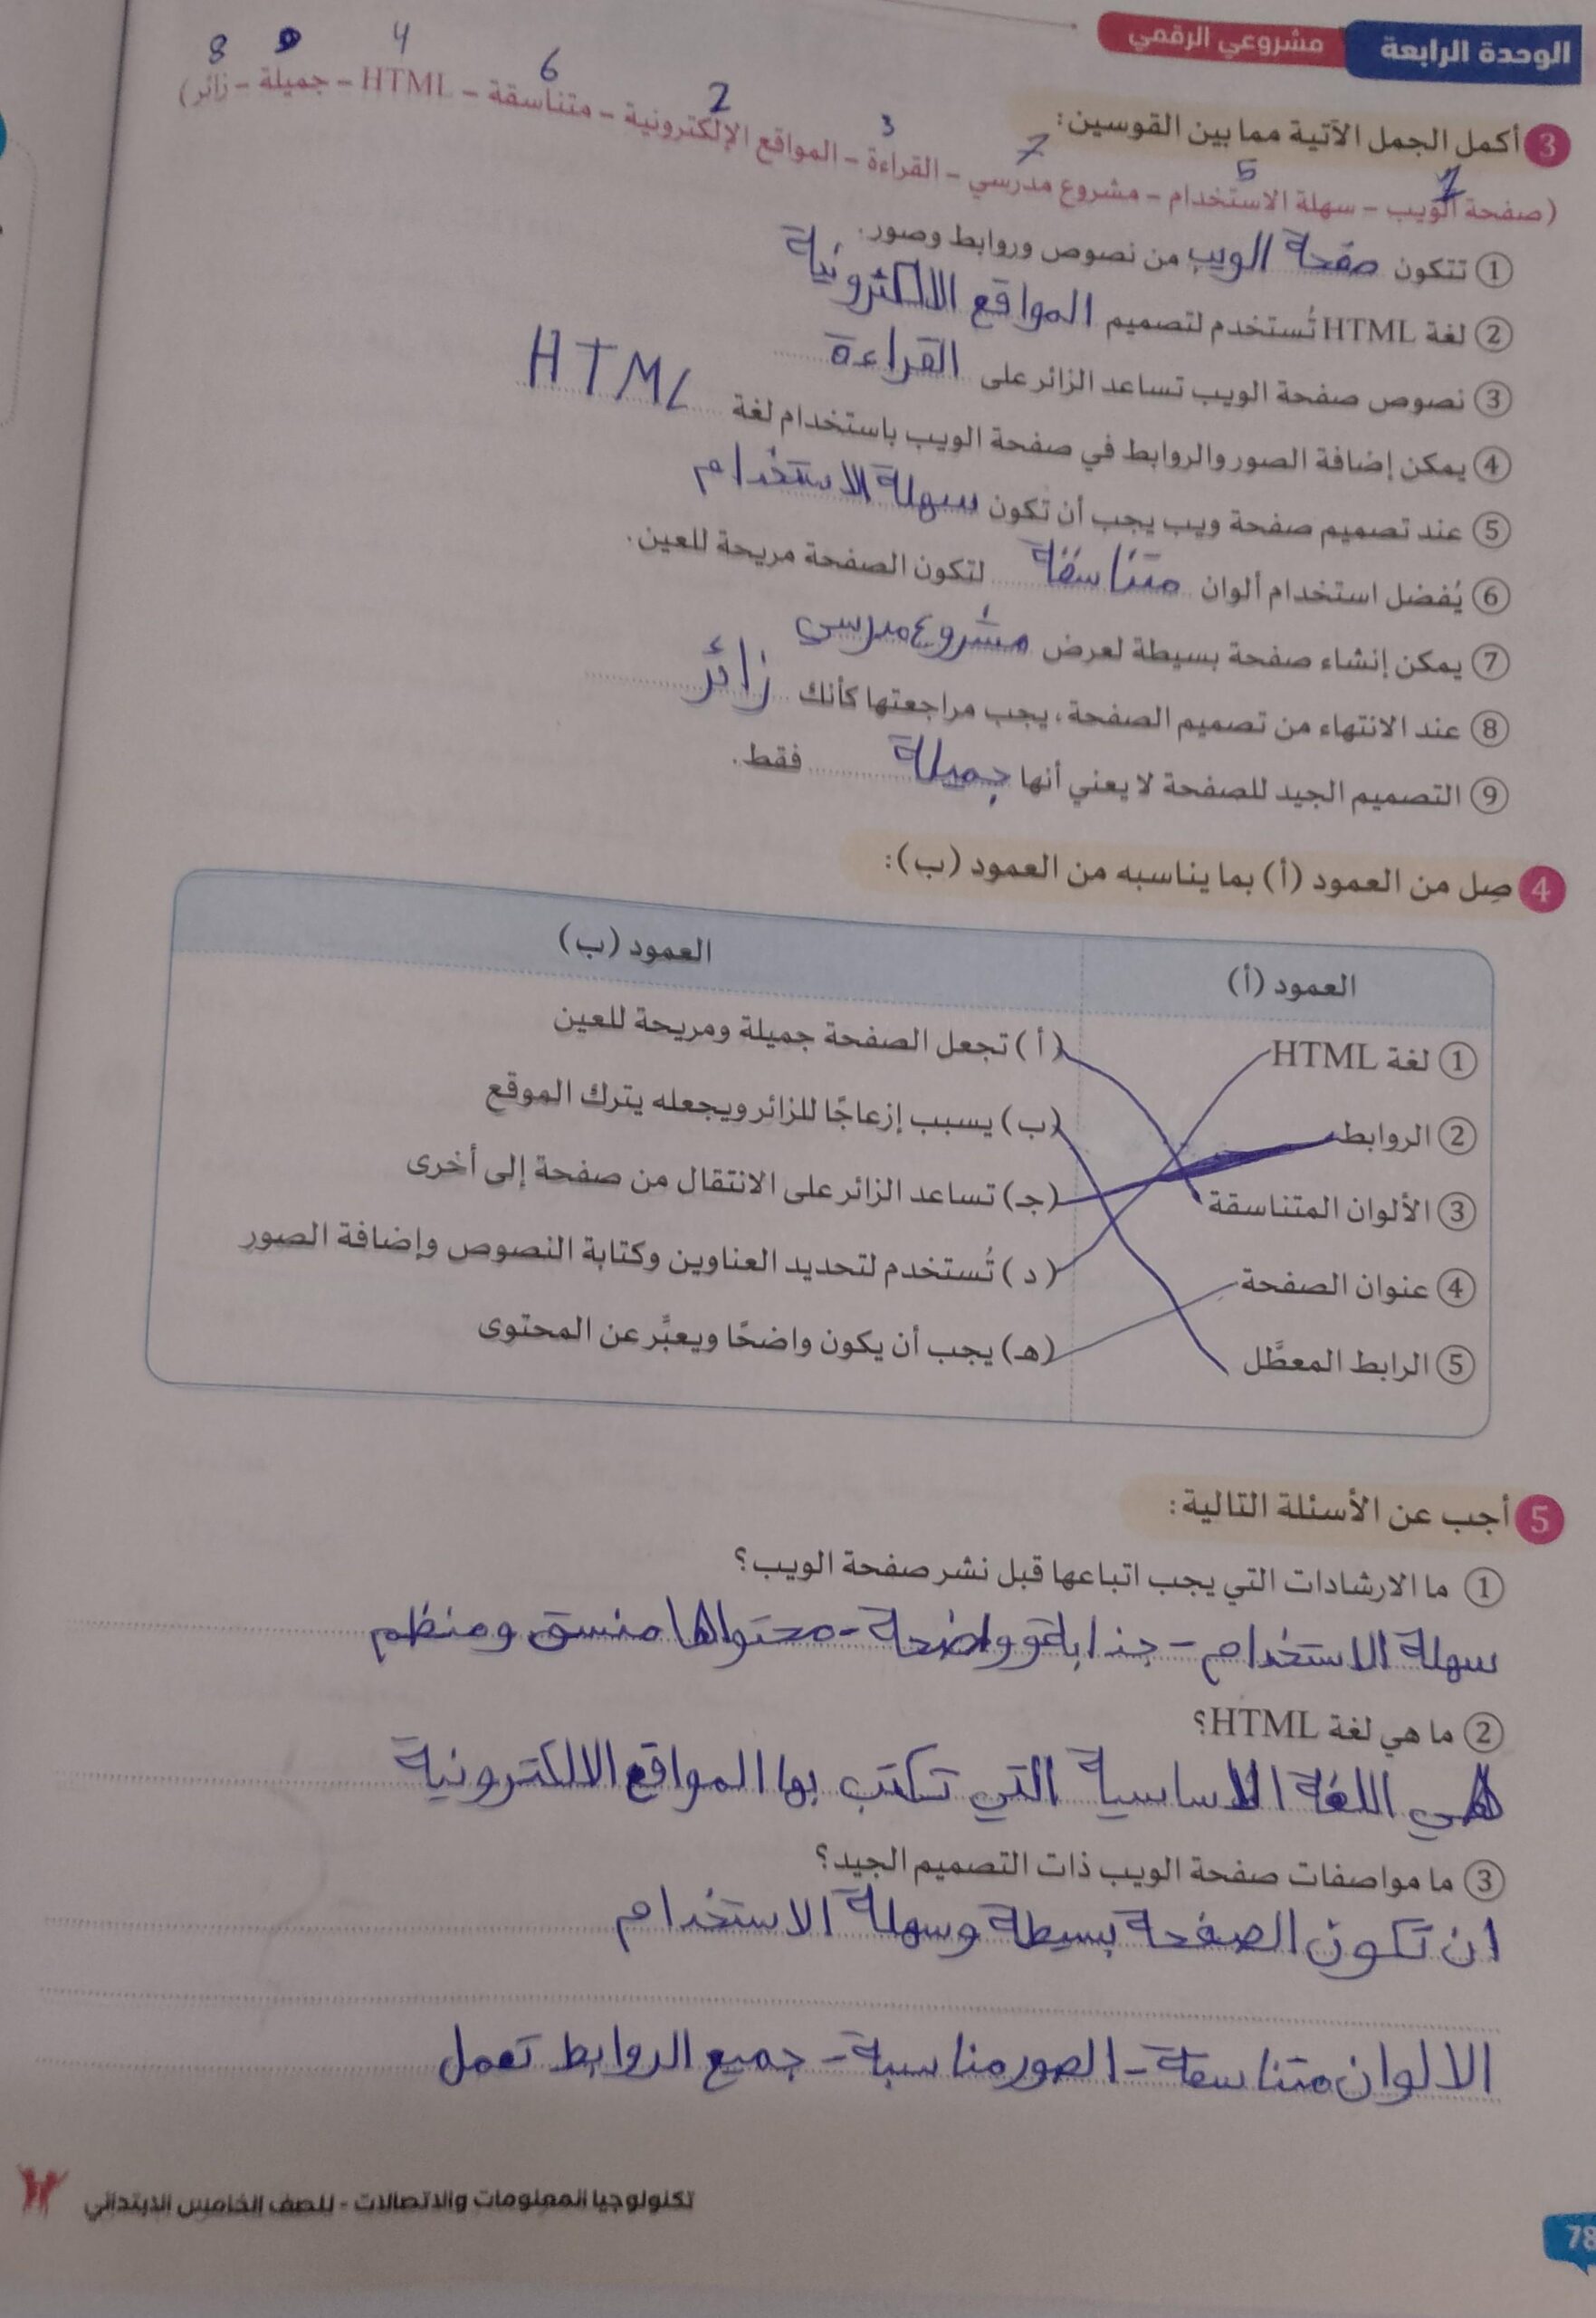 الوحدة الرابعة مشروعي الرقمي
3 أكمل الجمل الآتية مما بين القوسين:
8 9 4 6 2 3 7 5 1
(صفحة الويب - سهلة الاستخدام - مشروع مدرسي - القراءة - المواقع الإلكترونية - متناسقة - HTML - جميلة - زائر)
① تتكون صفحة الويب من نصوص وروابط وصور.
② لغة HTML تُستخدم لتصميم المواقع الالكترونية
③ نصوص صفحة الويب تساعد الزائر على القراءة
④ يمكن إضافة الصور والروابط في صفحة الويب باستخدام لغة HTML
⑤ عند تصميم صفحة ويب يجب أن تكون سهلة الاستخدام
⑥ يُفضل استخدام ألوان متناسقة لتكون الصفحة مريحة للعين.
⑦ يمكن إنشاء صفحة بسيطة لعرض مشروع مدرسي
⑧ عند الانتهاء من تصميم الصفحة، يجب مراجعتها كأنك زائر
⑨ التصميم الجيد للصفحة لا يعني أنها جميلة فقط.
4 صِل من العمود (أ) بما يناسبه من العمود (ب):
العمود (أ) العمود (ب)
① لغة HTML (أ) تجعل الصفحة جميلة ومريحة للعين
② الروابط (ب) يسبب إزعاجًا للزائر ويجعله يترك الموقع
③ الألوان المتناسقة (جـ) تساعد الزائر على الانتقال من صفحة إلى أخرى
④ عنوان الصفحة (د) تُستخدم لتحديد العناوين وكتابة النصوص وإضافة الصور
⑤ الرابط المعطَّل (هـ) يجب أن يكون واضحًا ويعبِّر عن المحتوى
5 أجب عن الأسئلة التالية:
① ما الارشادات التي يجب اتباعها قبل نشر صفحة الويب؟
سهلة الاستخدام - جذابة وواضحة - محتواها منسق ومنظم
② ما هي لغة HTML؟
هي اللغة الاساسية التي تكتب بها المواقع الالكترونية
③ ما مواصفات صفحة الويب ذات التصميم الجيد؟
ان تكون الصفحة بسيطة وسهلة الاستخدام
الالوان متناسقة - الصور مناسبة - جميع الروابط تعمل
تكنولوجيا المعلومات والاتصالات - للصف الخامس الابتدائي
78